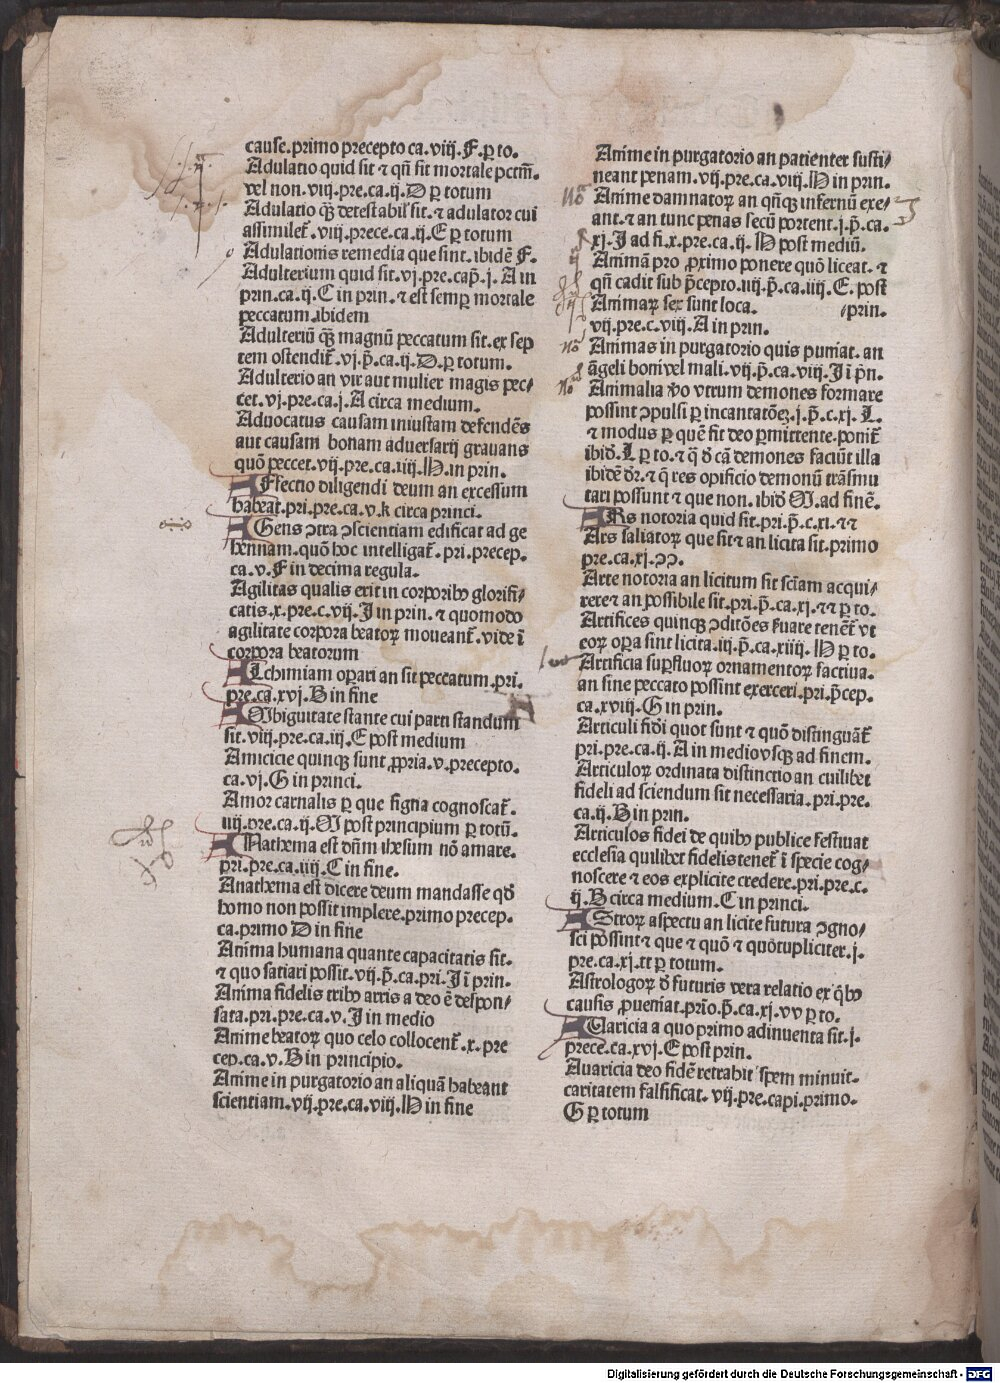 cause.primo precepto ca.viij.F.ꝑ to.
Adulatio quid sit ⁊ qñ sit mortale pctm̄.
vel non.viij.pre.ca.ij.D ꝑ totum
Adulatio qꝫ̄ detestabil' sit.⁊ adulator cui
assimilet̄.viij.prece.ca.ij.E ꝑ totum
Adulationis remedia que sint.ibidē F.
Adulterium quid sit.vj.pre.cap̄.j.A in
prin.ca.ij.C in prin.⁊ est semꝑ mortale
peccatum.ibidem
Adulteriū qꝫ̄ magnū peccatum sit.ex sep
tem ostendit̄.vj.p̄.ca.ij.D.ꝑ totum.
Adulterio an vir aut mulier magis pec⸗
cet.vj.pre.ca.j.A circa medium.
Aduocatus causam iniustam defendēs
aut causam bonam aduersarij grauans
quō peccet.vij.pre.ca.iiij.H.in prin.
AFfectio diligendi deum an excessum
habeat.pri.pre.ca.v.k circa princi.
AGens ↄtra ↄscientiam edificat ad ge
hennam.quō hoc intelligat̄.pri.precep.
ca.v.F in decima regula.
Agilitas qualis erit in corporibꝰ glorifi⸗
catis.x.pre.c.vij.J in prin.⁊ quomodo
agilitate corpora beatoꝝ moueant̄.vide ī
corpora beatorum
ALchimiam oꝑari an sit peccatum.pri.
pre.ca.xvj.B in fine
AMbiguitate stante cui parti standum
sit.viij.pre.ca.iij.E post medium
Amicicie quinqꝫ sunt ꝓpria.v.precepto.
ca.vj.G in princi.
Amor carnalis ꝑ que signa cognoscat̄.
iiij.pre.ca.ij.M post principium ꝑ totū.
ANathema est dn̄m ihesum nō amare.
pri.pre.ca.iiij.C in fine.
Anathema est dicere deum mandasse qđ
homo non possit implere.primo precep.
ca.primo D in fine
Anima humana quante capacitatis sit.
⁊ quo satiari possit.vij.p̄.ca.pri.J ī prin.
Anima fidelis tribꝰ arris a deo ē despon⸗
sata.pri.pre.ca.v.J in medio
Anime beatoꝝ quo celo collocent̄.x.pre
cep.ca.v.B in principio.
Anime in purgatorio an aliquā habeant
scientiam.vij.pre.ca.viij.H in fine
Anime in purgatorio an patienter susti⸗
neant penam.vij.pre.ca.viij.H in prin.
Anime damnatoꝝ an qn̄qꝫ infernū exe⸗
ant.⁊ an tunc penas secū portent.j.p̄.ca.
xj.J ad fi.x.pre.ca.ij.H post mediū.
Animā pro ꝓximo ponere quō liceat.⁊
qn̄ cadit sub p̄cepto.iiij.p̄.ca.iiij.E.post
Animaꝝ sex sunt loca. prin.
vij.pre.c.viij.A in prin.
Animas in purgatorio quis puniat.an
āgeli boni vel mali.vij.p̄.ca.viij.J ī p̄n.
Animalia ꝟo vtrum demones formare
possint ↄpulsi ꝑ incantatōeꝫ.j.p̄.c.xj.L.
⁊ modus ꝑ quē fit deo ꝑmittente.ponit̄
ibid̄.L ꝑ to.⁊ ꝙ đ cā demones faciūt illa
ibidē dr̄.⁊ ꝙ res opificio demonū trāsmu
tari possunt ⁊ que non.ibid̄ M.ad finē.
ARs notoria quid sit.pri.p̄.c.xi.⁊⁊
Ars saliatoꝝ que sit ⁊ an licita sit.primo
pre.ca.xj.ↄↄ.
Arte notoria an licitum sit sciam acqui⸗
rere ⁊ an possibile sit.pri.p̄.ca.xj.⁊⁊ ꝑ to.
Artifices quinqꝫ ↄditōes ẜuare tenēt̄ vt
eoꝝ oꝑa sint licita.iij.p̄.ca.xiiij.H ꝑ to.
Artificia suꝑfluoꝝ ornamentoꝝ factiua.
an sine peccato possint exerceri.pri.p̄cep.
ca.xviij.G in prin.
Articuli fidi quot sunt ⁊ quō distinguāt̄
pri.pre.ca.ij.A in medio vsqꝫ ad finem.
Articuloꝝ ordinata distinctio an cuilibet
fideli ad sciendum sit necessaria.pri.pre.
ca.ij.B in prin.
Articulos fidei de quibꝰ publice festiuat
ecclesia quilibet fidelis tenet̄ ī specie cog⸗
noscere ⁊ eos explicite credere.pri.pre.c.
ij.B circa medium.C in princi.
AStroꝝ aspectu an licite futura ↄgno⸗
sci possint ⁊ que ⁊ quō ⁊ quotupliciter.j.
pre.ca.xj.tt ꝑ totum.
Astrologoꝝ đ futuris vera relatio ex qbꝰ
causis ꝓueniat.prio.p̄.ca.xj.vv ꝑ to.
AUaricia a quo primo adinuenta sit.j.
prece.ca.xvj.E post prin.
Auaricia deo fidē retrahit spem minuit.
caritatem falsificat.vij.pre.capi.primo.
G ꝑ totum
Digitalisierung gefördert durch die Deutsche Forschungsgemeinschaft - DFG